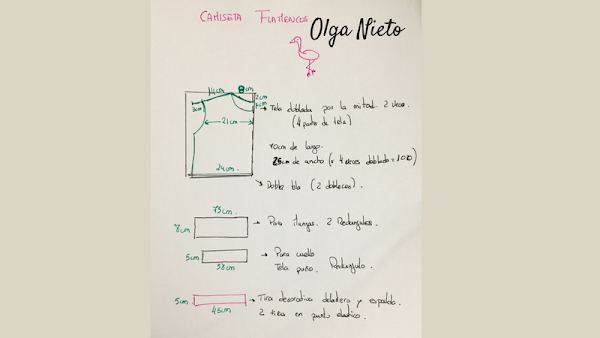 CAMISETA FLAMENCOS
Olga Nieto
14cm
8cm
2cm
7cm
3cm
21cm
24cm
→ Tela doblada por la mitad 2 veces.
(4 partes de tela)
70cm de largo.
26cm de ancho (x 4 veces doblado = 100)
→ Dobla bla (2 dobleces).
73cm.
8cm
→ Para mangas. 2 Rectángulos.
5cm
58cm
→ Para cuello
Tela puño. Rectángulo.
5cm
45cm
→ Tira decorativa delantero y espalda.
2 tira en punto elastico.